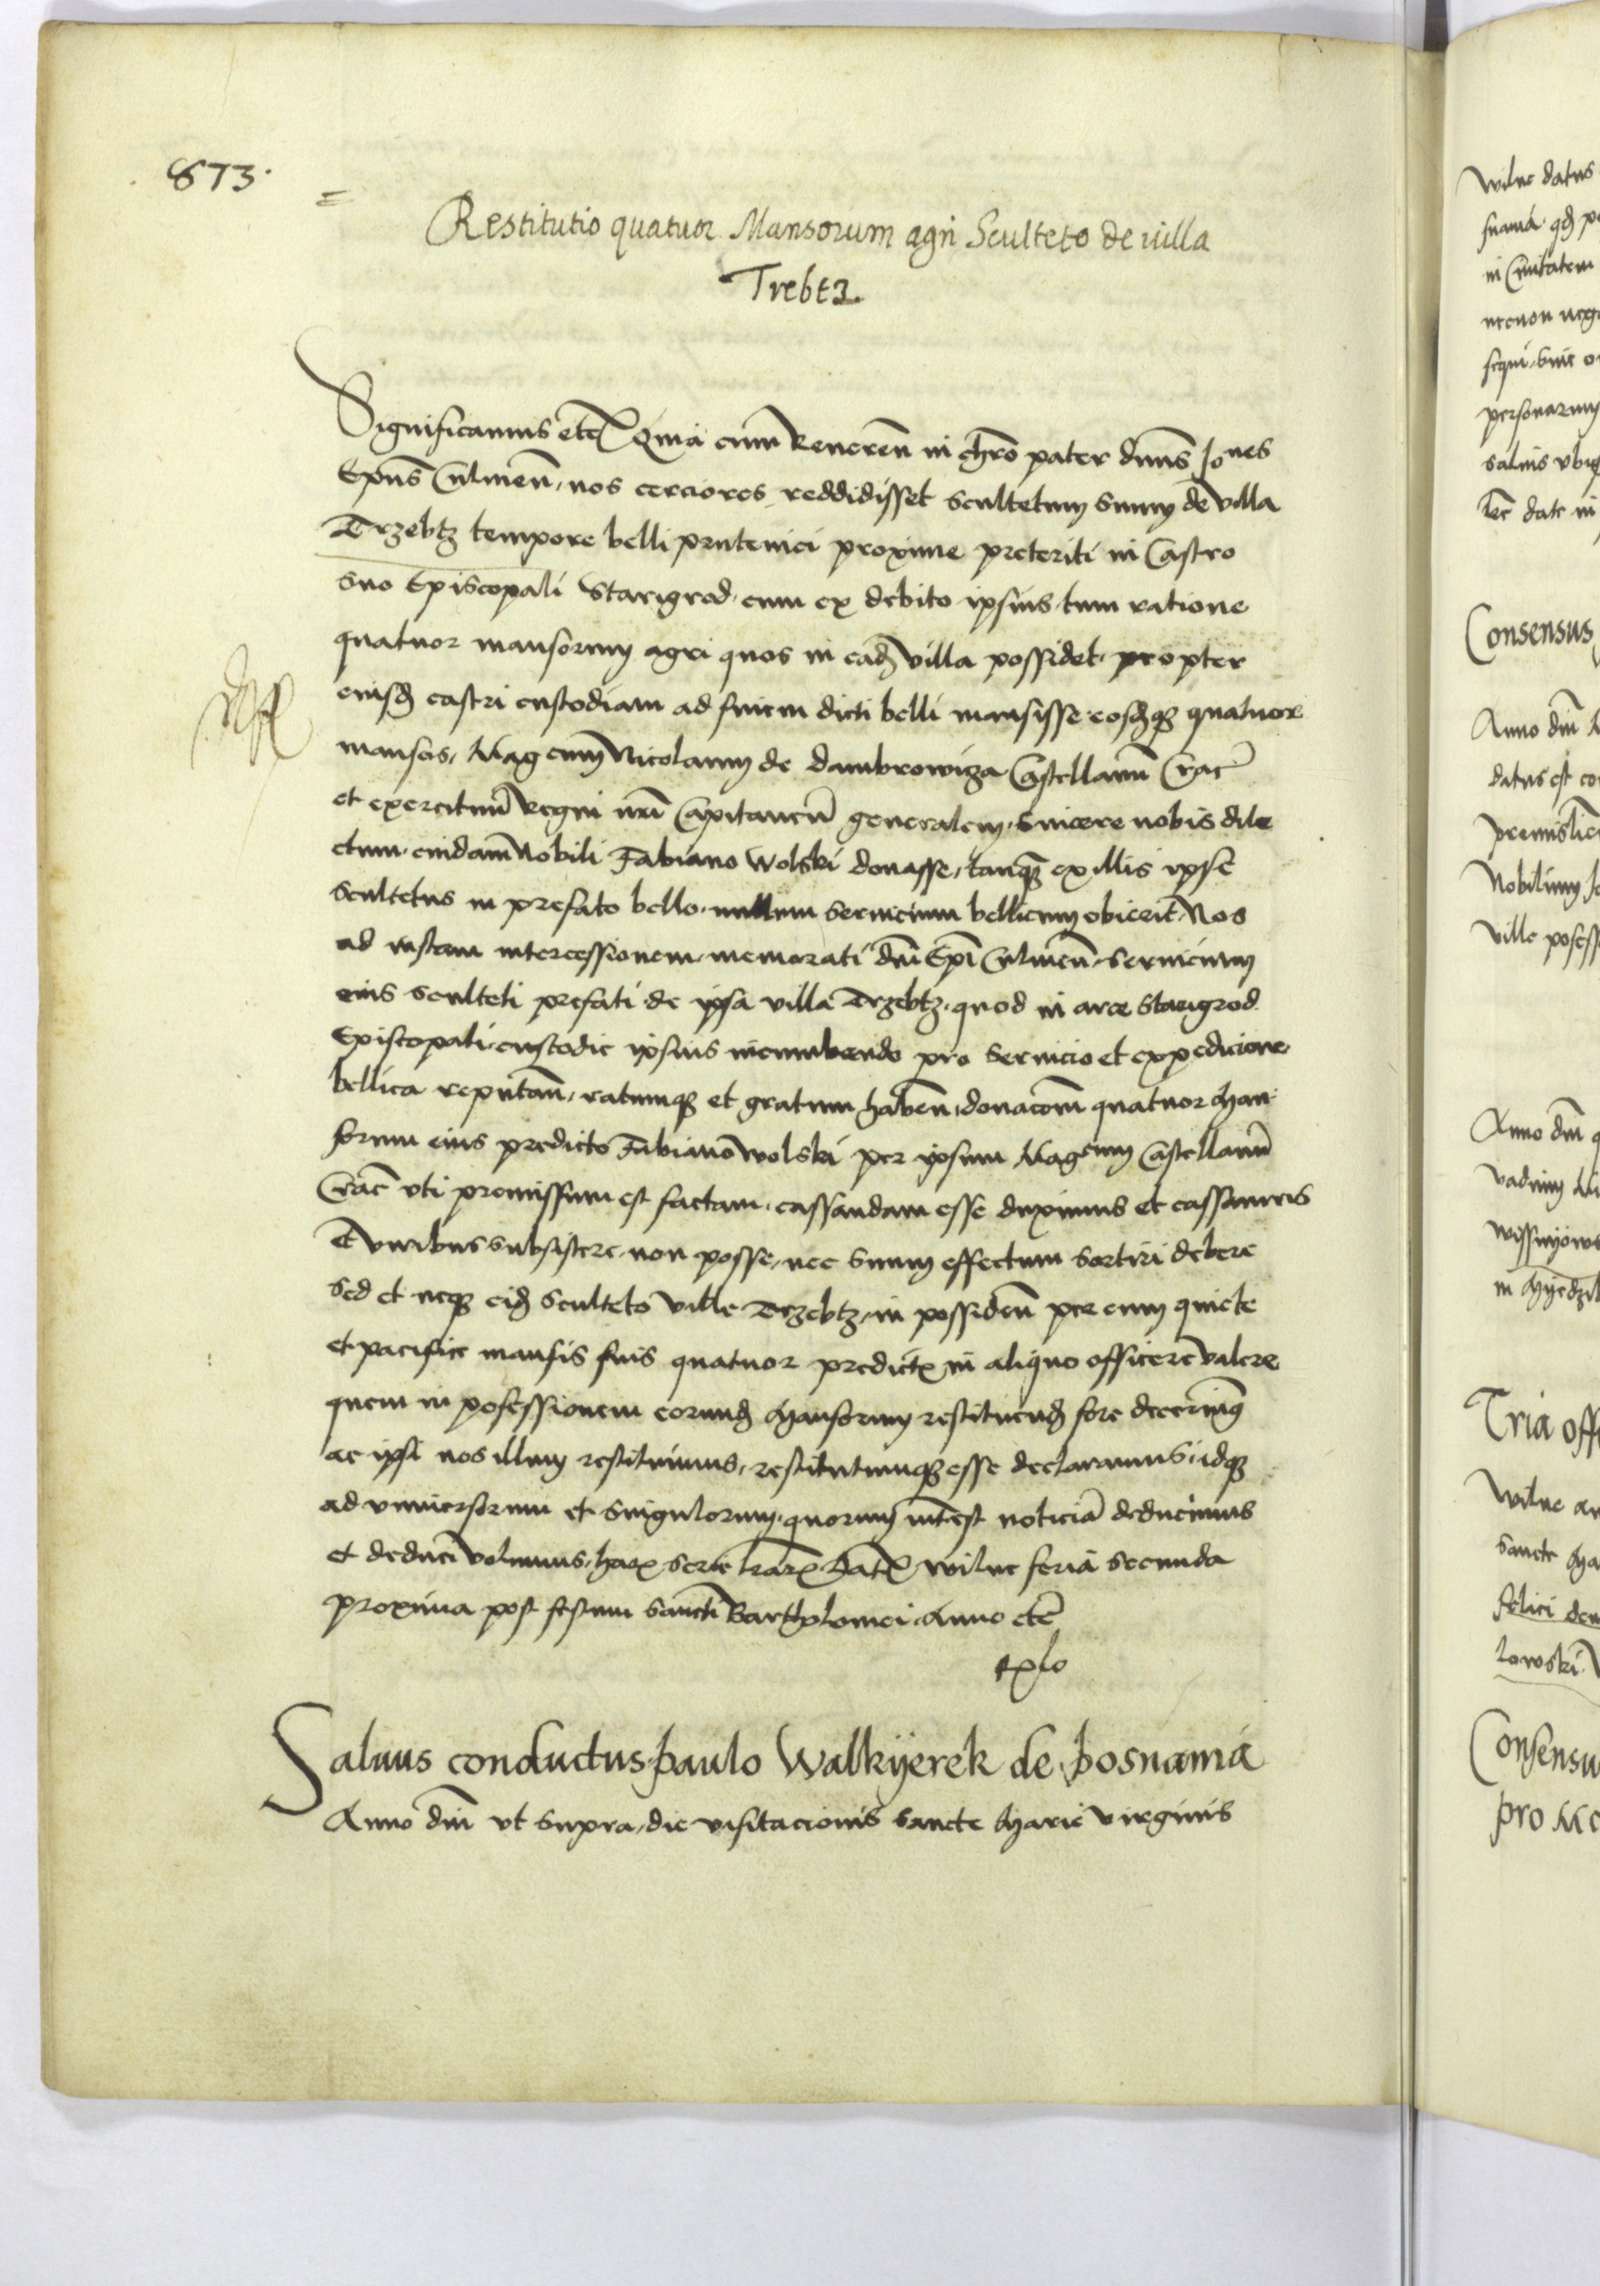 873.
Restitutio quatuor Mansorum agri Sculteto de villa
Trebtz.
Significamus etc Quia cum Reveren in chro pater dnns Jones
Epus Culmen, nos cerciores reddidisset scultetum suum de villa
Trzebtz tempore belli prutenici proxime preteriti in Castro
suo Episcopali Starigrod, cum ex debito ipsius, tum ratione
quatuor mansorum agri quos in ead villa possidet, propter
eiusd castri custodiam ad finem dicti belli mansisse eosdq quatuor
mansos, Mag cum Nicolaum de dambrowiza Castellanu Crac
et exercituu Regni nri Capitaneu generalem, sincere nobis dile
ctum, cuidam Nobili Fabiano Wolski donasse, tanq ex illis ipse
Scultetus in prefato bello, nullum servicium bellicum obierit, Nos
ad instam intercessionem, memorati dni Epi Culmen, servicium
eius sculteti prefati de ipsa villa Trzebtz, quod in arce Starigrod
Episcopali, custodie ipsius incumbendo pro servicio et expedicione
bellica reputan, ratumq et gratum haben, donacom quatuor Man
sorum eius predicto Fabiano Wolski per ipsum Mag cum Castellanu
Crac uti premissum est factam, cassandam esse duximus et cassamus
Et viribus subsistere, non posse, nec suum effectum sortiri debere
Sed et neq eid Sculteto ville Trzebtz, in possiden per eum quiete
et pacifice mansis suis quatuor predict in aliquo officere valere
quem in possessionem eorund Mansorum restituend fore decernim
ac ipsi nos illum restituimus, restitutumq esse declaramus, idq
ad universorum et singulorum, quorum intest noticia deducimus
et deduci volumus, har serie lrar Dat Wilne feria secunda
proxima post festum sancti Bartholomei Anno etc
Salvus conductus paulo Walkyerek de posnania
Anno dni ut supra, die visitacionis sancte Marie virginis
Wilne datus
in Civitatem
necnon
personarum
salvis
date in
Consensus
Anno dni
datus est
premislien
Nobilium
ville
Anno dni
vadium
Tria off
Wilne
Sancte
felici
lowski
Consensu
pro